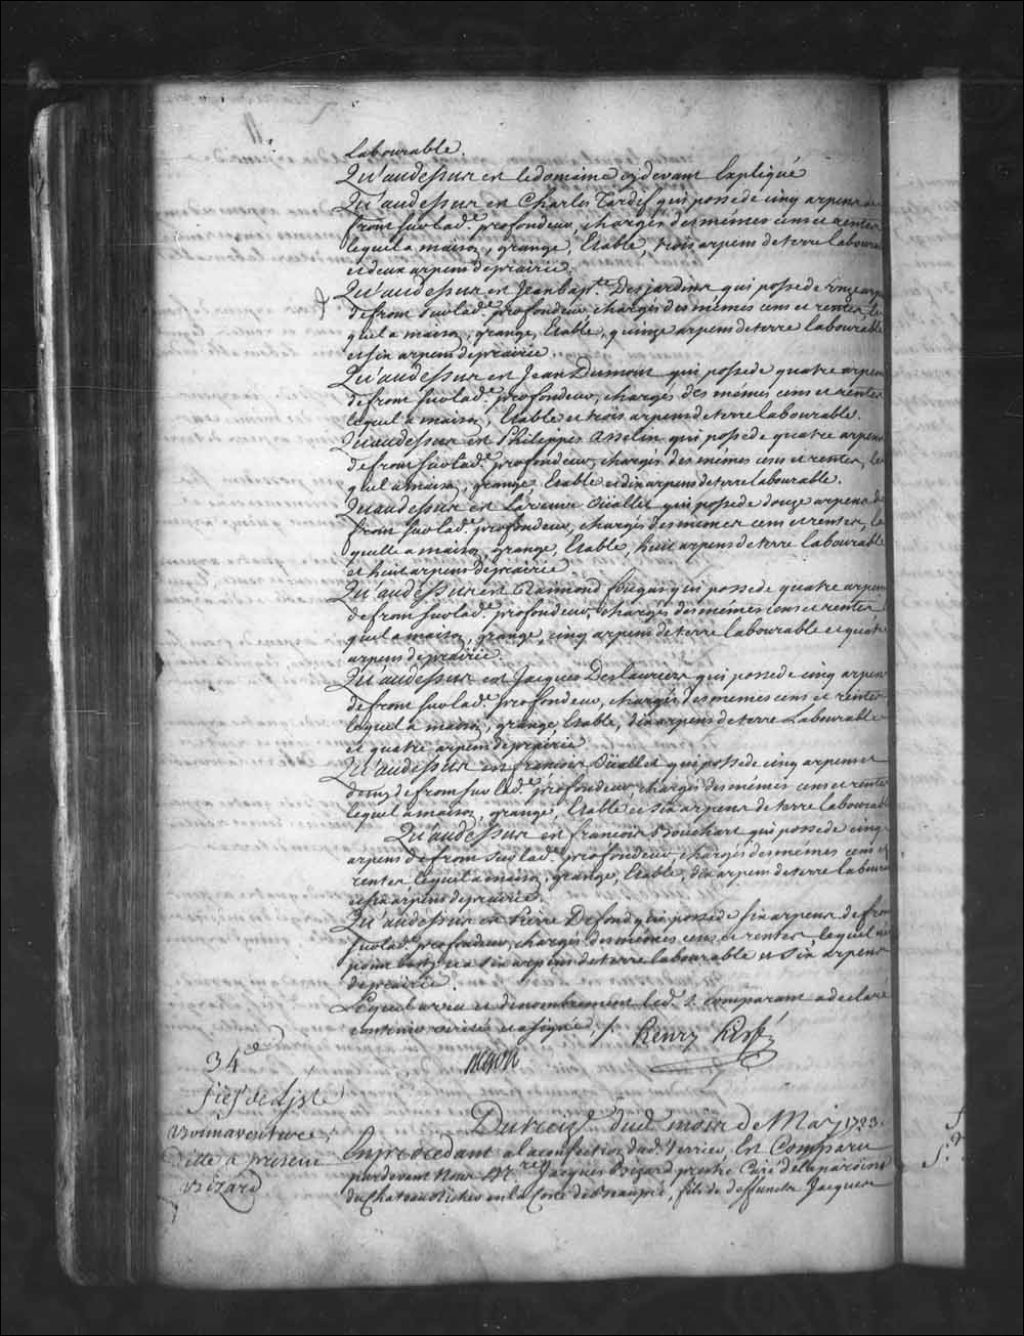 labourable.
Qu'audessus est le domaine cydevant Expliqué
Qu'audessus est Charles Tardif qui possede cinq arpens de
front sur lad.e profondeur, chargés des mémes cens et rentes
lequel a maison, grange, Etable, trois arpens de terre laboura
et deux arpens de prairie.
Qu'audessus est Jean bap.te Desjardins qui possede onze arp
de front sur lad.e profondeur, chargés des mémes cens et rentes, le
quel a maison, grange, Etable, quinze arpens de terre labourable
et six arpens de prairie.
Qu'audessus est Jean Dumont qui possede quatre arpens
de front sur lad.e profondeur, chargés des mémes cens et rentes
lequel a maison, Etable et trois arpens de terre labourable.
Quaudessus est Philippes Asselin qui possede quatre arpens
de front sur lad.e profondeur, chargés des mémes cens et rentes, le
quel a maison, grange Etable et dix arpens de terre labourable.
Quaudessus est La veuve Ouallet qui possede douze arpens de
front sur lad.e profondeur, chargés des memes cens et rentes, la
quelle a maison, grange, Etable, huit arpens de terre labourable
et huit arpens de prairie
Qu'audessus est Raimond qui possede quatre arpens
de front sur lad.e profondeur, chargés des mémes cens et rentes
quel a maison, grange, cinq arpens de terre labourable et quatre
arpens de prairie.
Qu'audessus est Jacques Deslauriers qui possede cinq arpens
de front sur lad.e profondeur, chargés des memes cens et rentes
lequel a maison, grange, Etable, dix arpens de terre Labourable
et quatre arpens de prairie
Qu'audessus est francois Ouallet qui possede cinq arpens et
demy de front sur lad.e profondeur, chargés des mémes cens et rentes
lequel a maison, grange, Etable et six arpens de terre labourable
Qu'audessus est francois Bouchart qui possede cinq
arpens de front sur lad.e profondeur, chargés des mémes cens et
rentes lequel a maison, grange, Etable, dix arpens de terre laboura
et six arpens de prairie.
Qu'audessus est Pierre Defond qui possede six arpens de front
sur lad.e profondeur, chargés des mémes cens et rentes, lequel na
point bâty et a six arpens de terre labourable et six arpens
de prairie.
Lequel aveu et denombrement led. s. comparant a declaré
contenir verité et a signé, /.
Henry
Begon
34.e
fief de L'jsle
Bonnaventure,
ditte a present
Bizard
Du treize dud. mois de May 1723.
En procedant a la confection dud. Terrier, Est Comparu
pardevant Nous M.re Jacques Bizard prestre Curé de la paroisse
du Chateau Richer en la Coste de Beaupré, fils de deffunctes Jacques